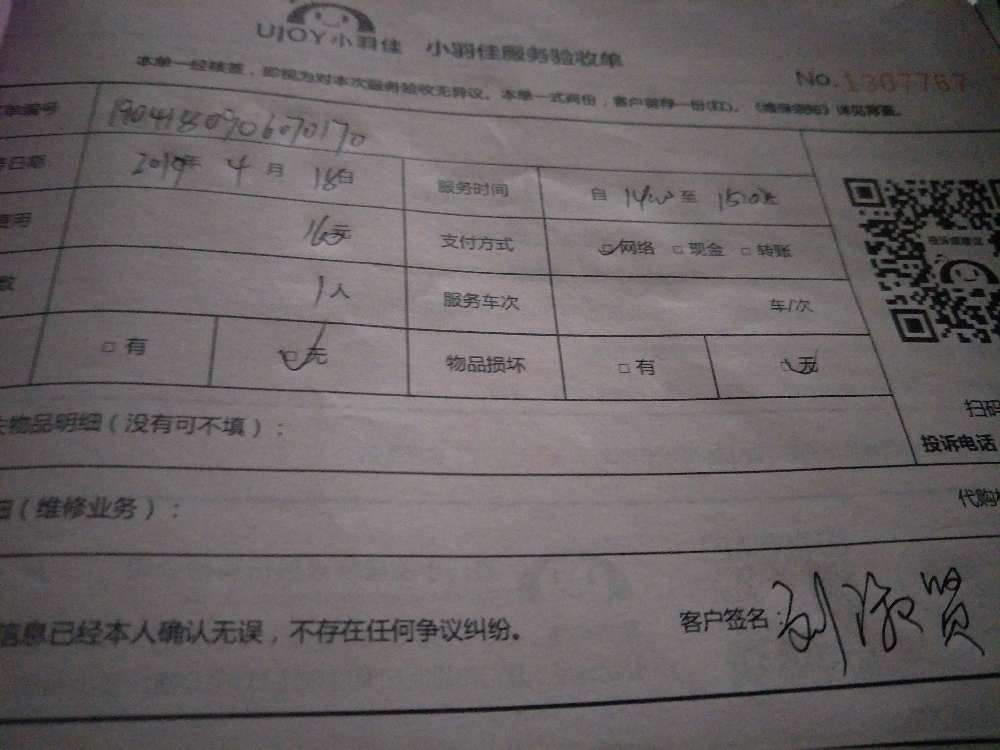 UJOY小羽佳 小羽佳服务验收单
No.1307767
本单一经核签，即视为对本次服务验收无异议。本单一式两份，客户留存一份(红)。《维保须知》详见背面。
单编号 1904180906070170
日期 2019年 4月 18日 服务时间 自 14:00 至 15:00
费用 元 支付方式 □网络 □现金 □转账
数 1人 服务车次 车/次
□有 □无 物品损坏 □有 □无
投诉或建议
扫码
投诉电话
物品明细（没有可不填）：
细（维修业务）：
代购
信息已经本人确认无误，不存在任何争议纠纷。
客户签名：刘淑贤